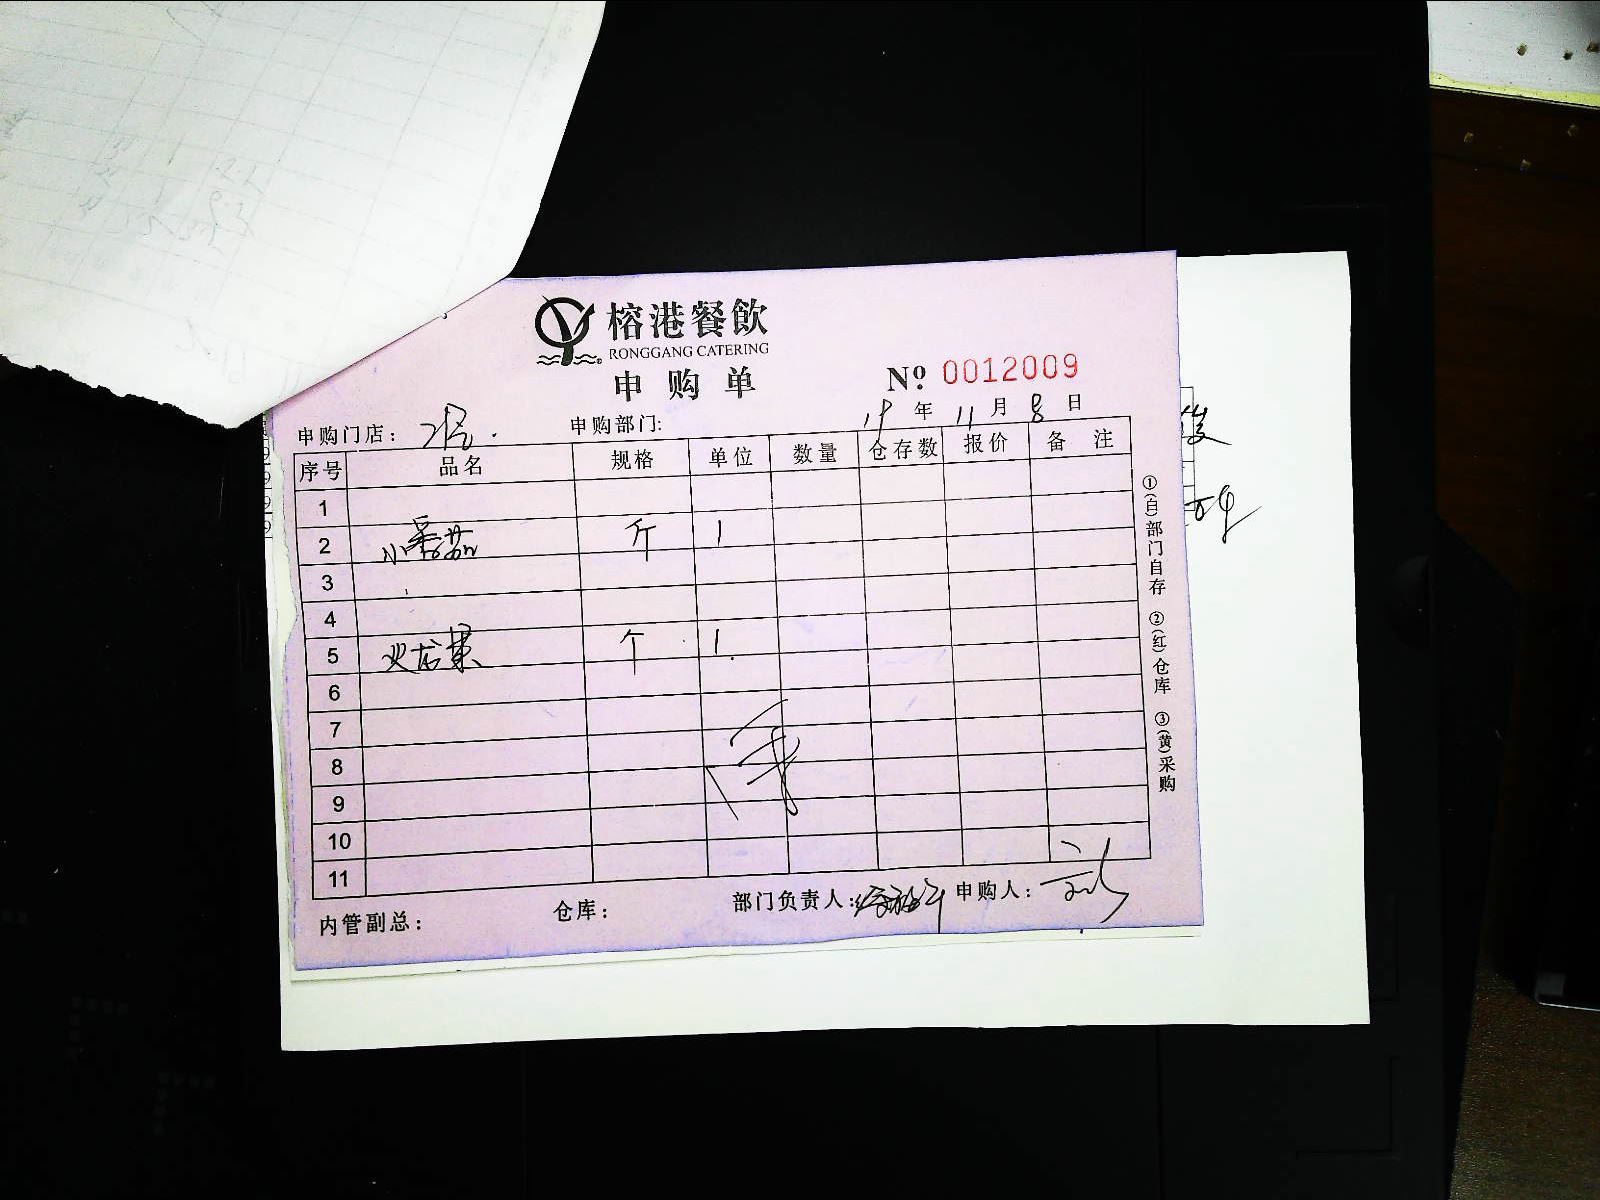 榕港餐飲
RONGGANG CATERING
申购单
№ 0012009
19年 11月 8日
申购门店: 申购部门:
序号 品名 规格 单位 数量 仓存数 报价 备注
1
2 小番茄 斤 1
3
4
5 火龙果 个 1
6
7
8
9
10
11
内管副总: 仓库: 部门负责人: 申购人:
①(白)部门自存 ②(红)仓库 ③(黄)采购